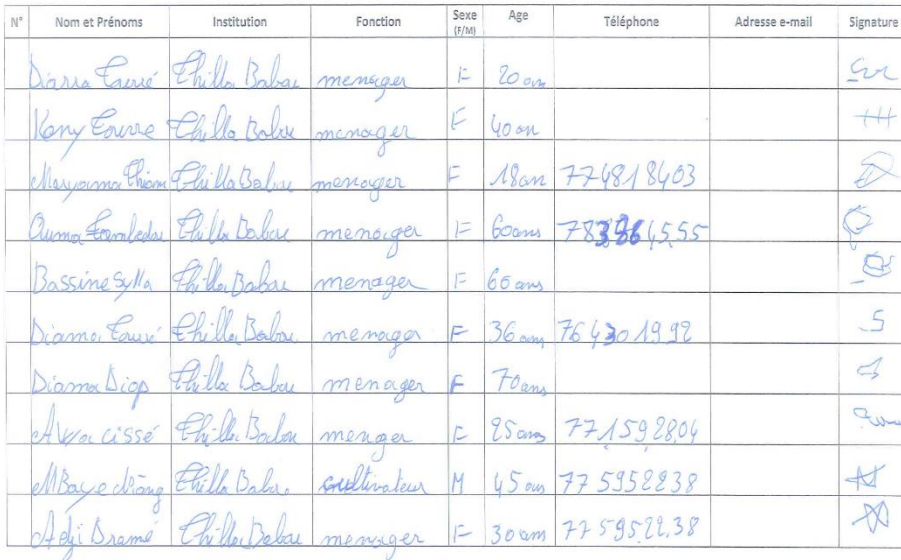 N° Nom et Prénoms Institution Fonction Sexe (F/M) Age Téléphone Adresse e-mail Signature
Diarra Touré Thilla Babou menager F 20 ans
Kany Toure Thilla Babou menager F 40 an
Maryama Thiam Thilla Babou menager F 18an 774818403
Ouma Thilla Babou menager F 60ans 783864555
Bassine Sylla Thilla Babou menager F 60 ans
Diama Touré Thilla Babou menager F 36 ans 764301992
Diama Diop Thilla Babou menager F 70ans
Awa cissé Thilla Babou menager F 25ans 771592804
MBaye Thilla Babou cultivateur M 45 ans 775952238
Adji Dramé Thilla Babou menager F 30am 775952238